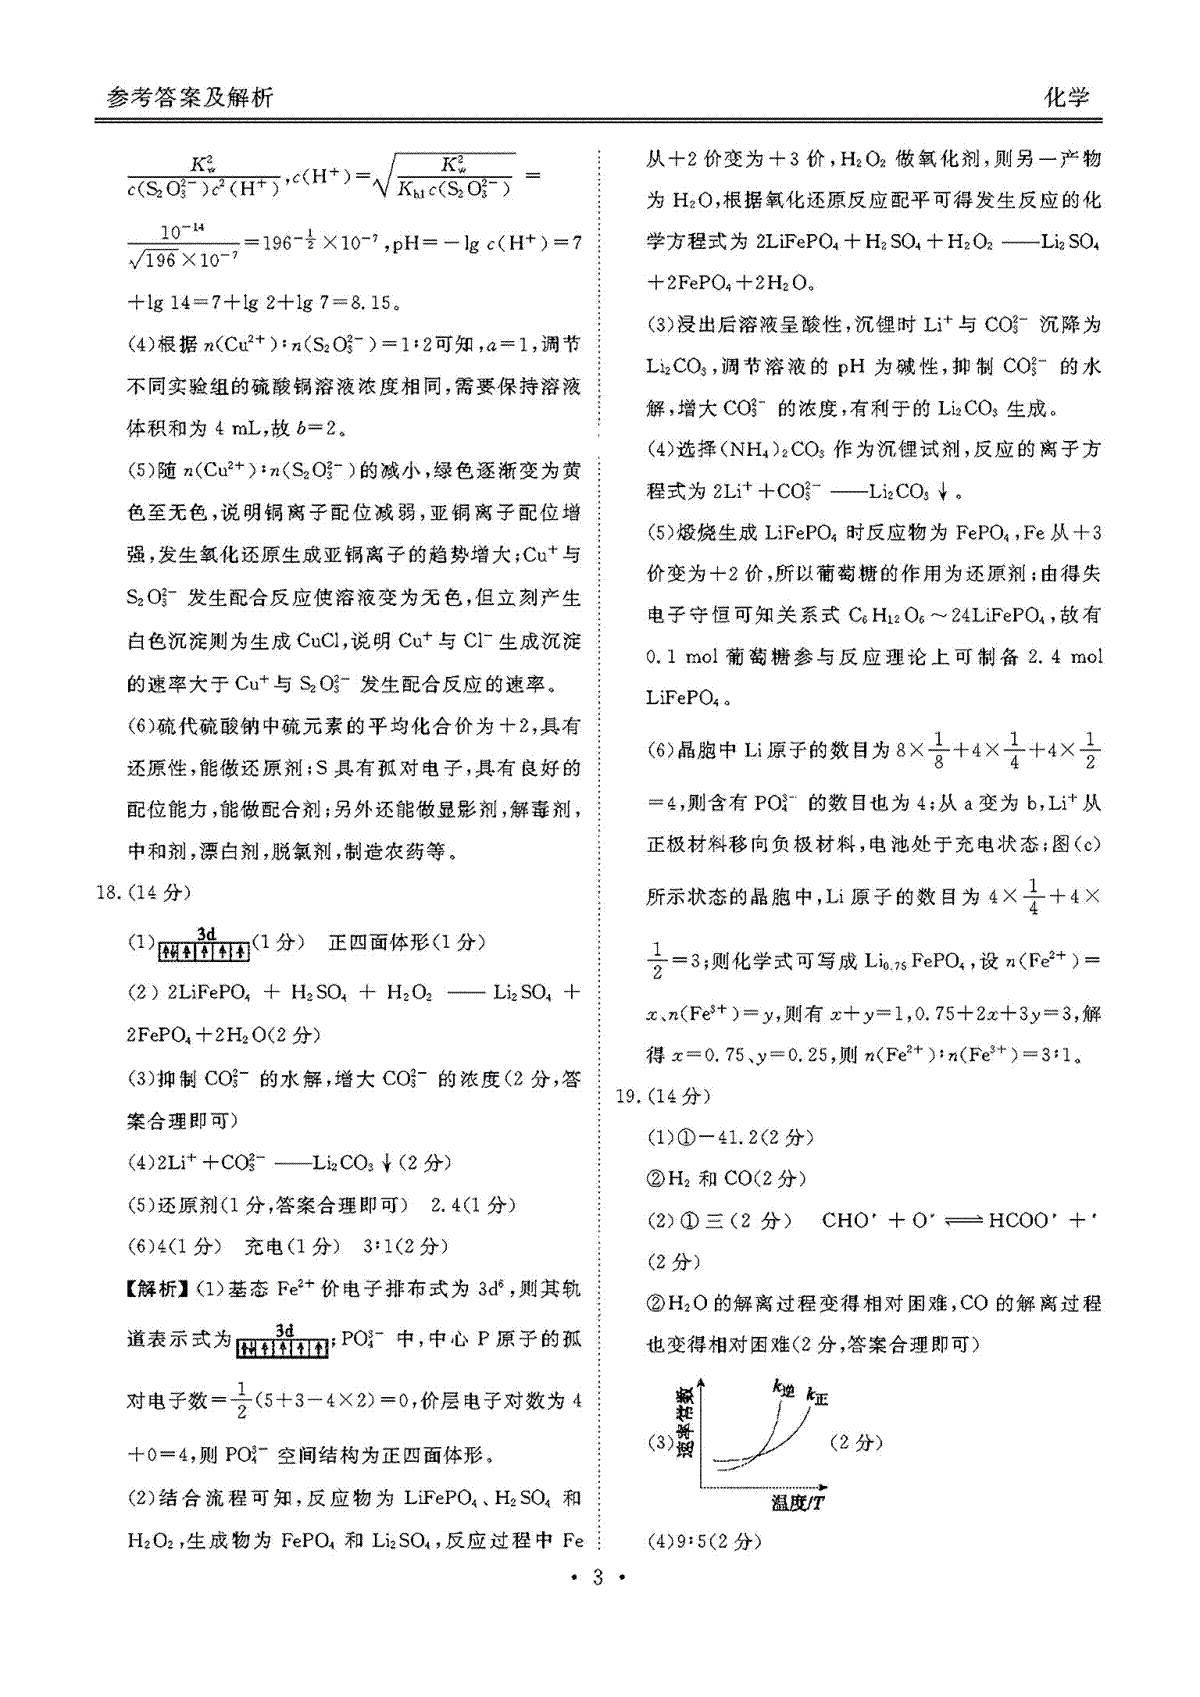 参考答案及解析 化学
K²w/(c(S₂O₃²⁻)c²(H⁺)),c(H⁺)=√(K²w/(K_h1 c(S₂O₃²⁻)))=
10⁻¹⁴/(√196×10⁻⁷)=196^(-1/2)×10⁻⁷,pH=-lg c(H⁺)=7
+lg 14=7+lg 2+lg 7=8.15。
(4)根据 n(Cu²⁺)∶n(S₂O₃²⁻)=1∶2可知,a=1,调节
不同实验组的硫酸铜溶液浓度相同,需要保持溶液
体积和为 4 mL,故 b=2。
(5)随 n(Cu²⁺)∶n(S₂O₃²⁻)的减小,绿色逐渐变为黄
色至无色,说明铜离子配位减弱,亚铜离子配位增
强,发生氧化还原生成亚铜离子的趋势增大;Cu⁺与
S₂O₃²⁻ 发生配合反应使溶液变为无色,但立刻产生
白色沉淀则为生成 CuCl,说明 Cu⁺与 Cl⁻生成沉淀
的速率大于 Cu⁺与 S₂O₃²⁻ 发生配合反应的速率。
(6)硫代硫酸钠中硫元素的平均化合价为+2,具有
还原性,能做还原剂;S 具有孤对电子,具有良好的
配位能力,能做配合剂;另外还能做显影剂,解毒剂,
中和剂,漂白剂,脱氯剂,制造农药等。
18.(14 分)
(1) 3d ↑↓ ↑ ↑ ↑ ↑ (1 分) 正四面体形(1 分)
(2) 2LiFePO₄ + H₂SO₄ + H₂O₂ —— Li₂SO₄ +
2FePO₄+2H₂O(2 分)
(3)抑制 CO₃²⁻ 的水解,增大 CO₃²⁻ 的浓度(2 分,答
案合理即可)
(4)2Li⁺+CO₃²⁻ ——Li₂CO₃↓(2 分)
(5)还原剂(1 分,答案合理即可) 2.4(1 分)
(6)4(1 分) 充电(1 分) 3∶1(2 分)
【解析】(1)基态 Fe²⁺价电子排布式为 3d⁶,则其轨
道表示式为 3d ↑↓ ↑ ↑ ↑ ↑ ;PO₄³⁻ 中,中心 P 原子的孤
对电子数=1/2(5+3-4×2)=0,价层电子对数为 4
+0=4,则 PO₄³⁻ 空间结构为正四面体形。
(2)结合流程可知,反应物为 LiFePO₄、H₂SO₄ 和
H₂O₂,生成物为 FePO₄ 和 Li₂SO₄,反应过程中 Fe
从+2 价变为+3 价,H₂O₂ 做氧化剂,则另一产物
为 H₂O,根据氧化还原反应配平可得发生反应的化
学方程式为 2LiFePO₄+H₂SO₄+H₂O₂ ——Li₂SO₄
+2FePO₄+2H₂O。
(3)浸出后溶液呈酸性,沉锂时 Li⁺与 CO₃²⁻ 沉降为
Li₂CO₃,调节溶液的 pH 为碱性,抑制 CO₃²⁻ 的水
解,增大 CO₃²⁻ 的浓度,有利于的 Li₂CO₃ 生成。
(4)选择(NH₄)₂CO₃ 作为沉锂试剂,反应的离子方
程式为 2Li⁺+CO₃²⁻ ——Li₂CO₃↓。
(5)煅烧生成 LiFePO₄ 时反应物为 FePO₄,Fe 从+3
价变为+2 价,所以葡萄糖的作用为还原剂;由得失
电子守恒可知关系式 C₆H₁₂O₆~24LiFePO₄,故有
0.1 mol 葡萄糖参与反应理论上可制备 2.4 mol
LiFePO₄。
(6)晶胞中 Li 原子的数目为 8×1/8+4×1/4+4×1/2
=4,则含有 PO₄³⁻ 的数目也为 4;从 a 变为 b,Li⁺从
正极材料移向负极材料,电池处于充电状态;图(c)
所示状态的晶胞中,Li 原子的数目为 4×1/4+4×
1/2=3;则化学式可写成 Li₀.₇₅FePO₄,设 n(Fe²⁺)=
x、n(Fe³⁺)=y,则有 x+y=1,0.75+2x+3y=3,解
得 x=0.75、y=0.25,则 n(Fe²⁺)∶n(Fe³⁺)=3∶1。
19.(14 分)
(1)①-41.2(2 分)
②H₂ 和 CO(2 分)
(2)①三(2 分) CHO* + O* ⇌ HCOO* + *
(2 分)
②H₂O 的解离过程变得相对困难,CO 的解离过程
也变得相对困难(2 分,答案合理即可)
(3) 速率常数 k逆 k正 温度/T (2 分)
(4)9∶5(2 分)
· 3 ·